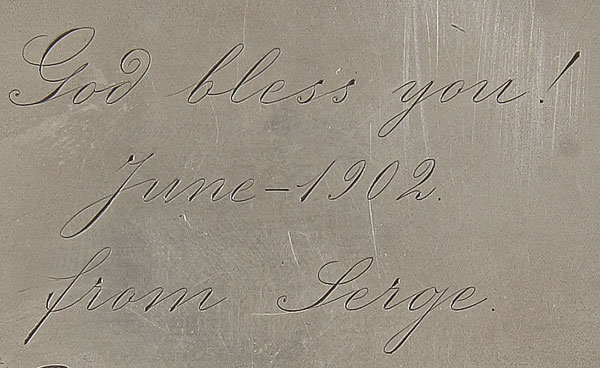 God bless you!
June-1902.
from Serge.